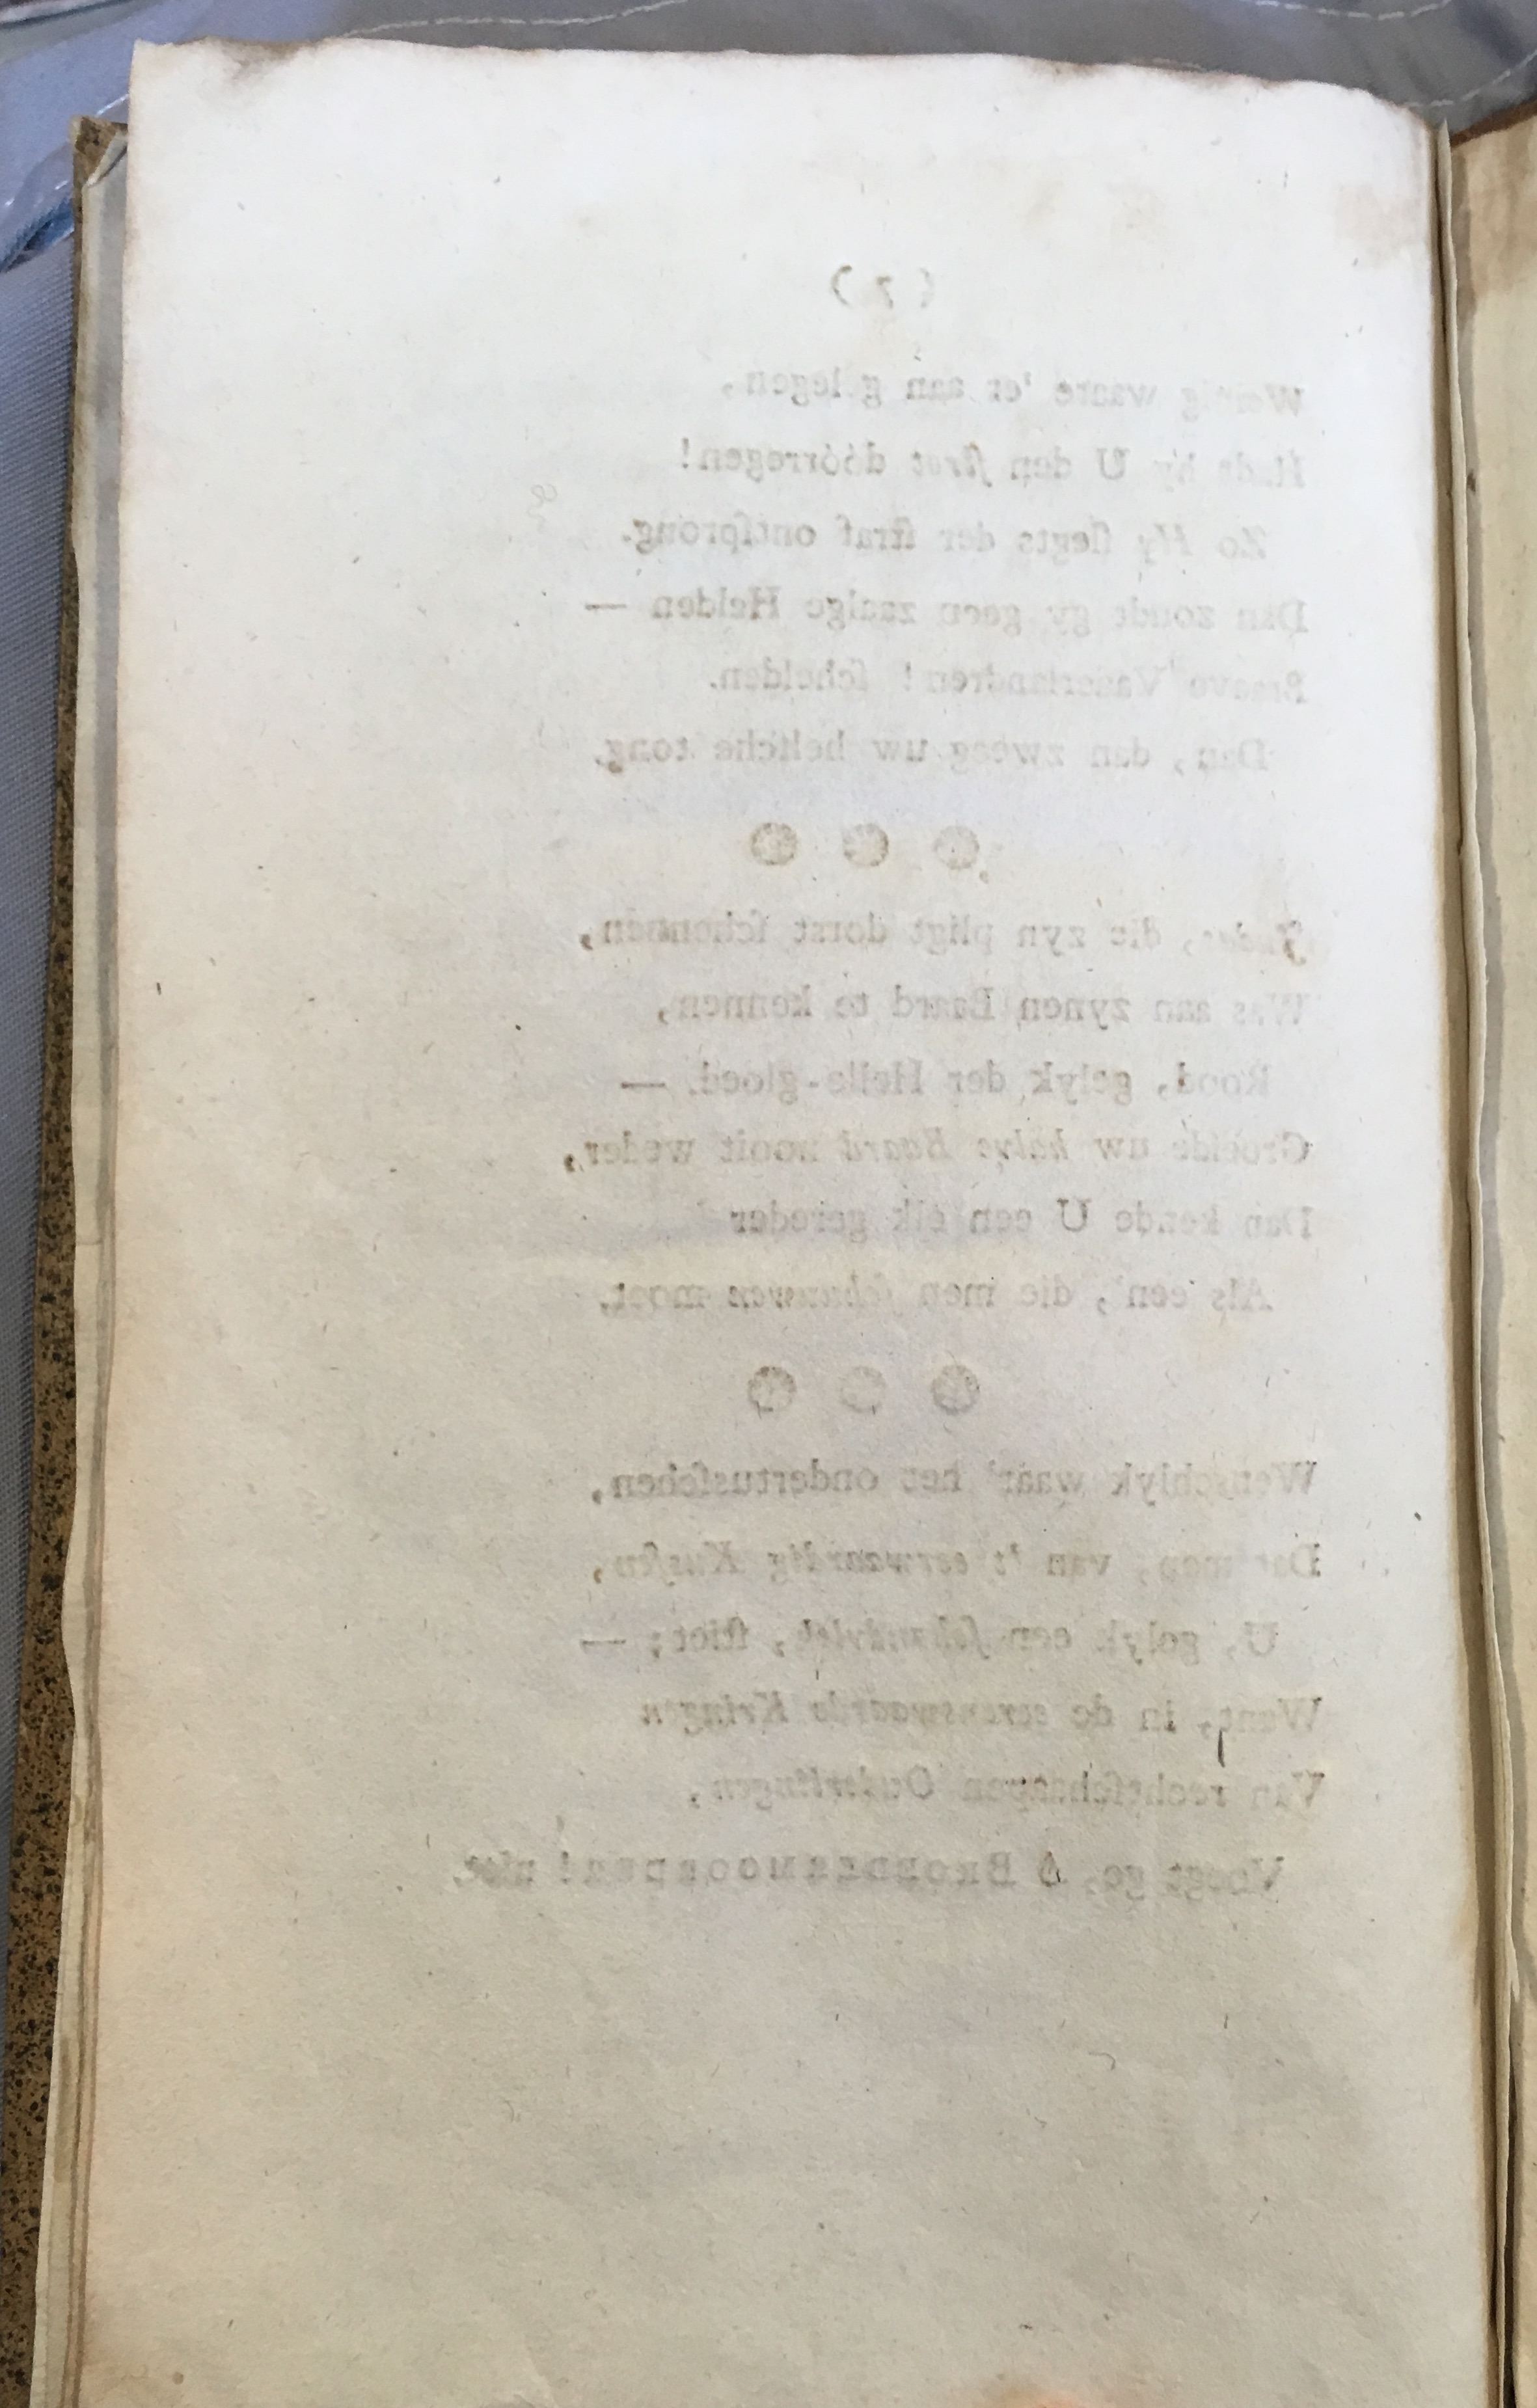 ( 7 )
Weinig waare 'er aan gelegen,
Hadt hy U den ſtrot dóórregen!
Zo Hy ſlegts der ſtraf ontſprong.
Dan zoudt gy geen zaalge Helden —
Braave Vaderlandren! ſchelden.
Dan, dan zweeg uw helſche tong.
Judas, die zyn pligt dorst ſchennen,
Was aan zynen Baard te kennen,
Rood, gelyk der Helle-gloed. —
Groeide uw halve Baard nooit weder,
Dan kende U een elk gereder
Als een', die men ſchuuwen moet.
Wenschlyk waar' het ondertusſchen,
Dat men, van 't eerwaardig Kusſen,
U, gelyk een ſchandvlek, ſtiet; —
Want, in de eerenswaarde Kringen
Van rechtſchapen Ouderlingen,
Voegt ge, ô BROEDERMOORDER! niet.